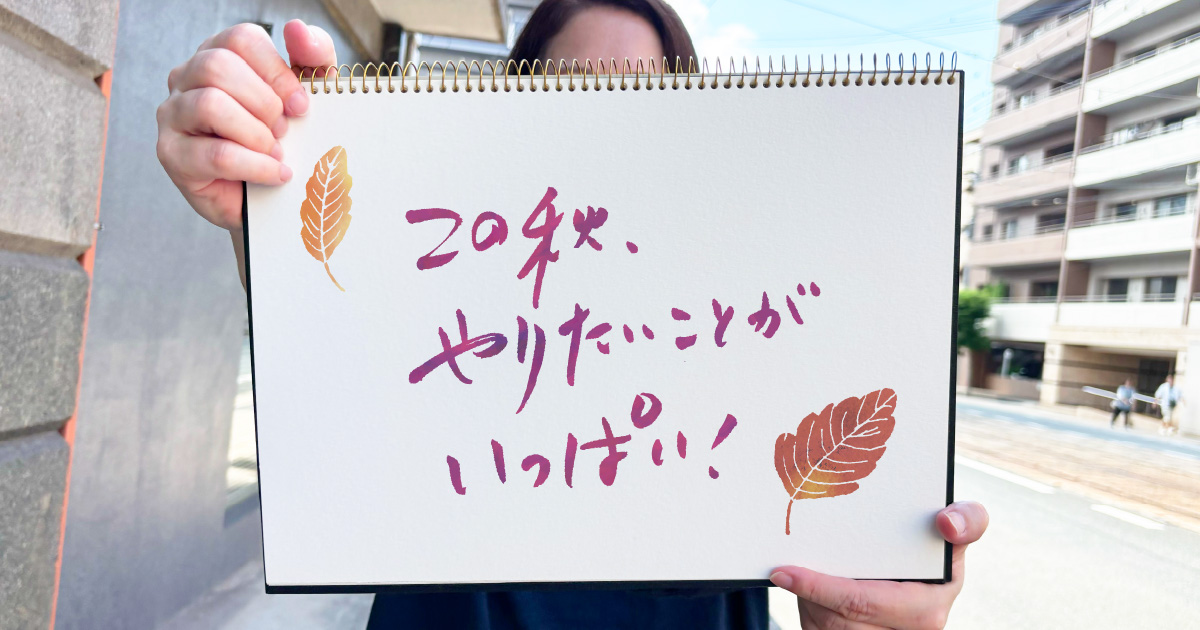 この秋、
やりたいことが
いっぱい!